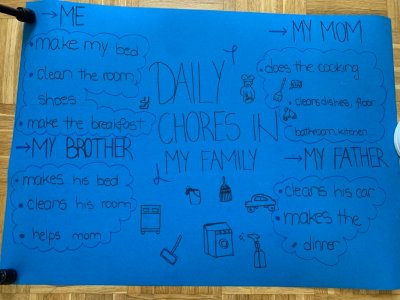 →ME
• make my bed
• clean the room,
shoes
• make the breakfast
→MY BROTHER
• makes his bed
• cleans his room
• helps mom
DAILY
CHORES IN
MY FAMILY
→MY MOM
• does the cooking
• cleans dishes, floor
bathroom, kitchen
→MY FATHER
• cleans his car
• makes the
• dinner